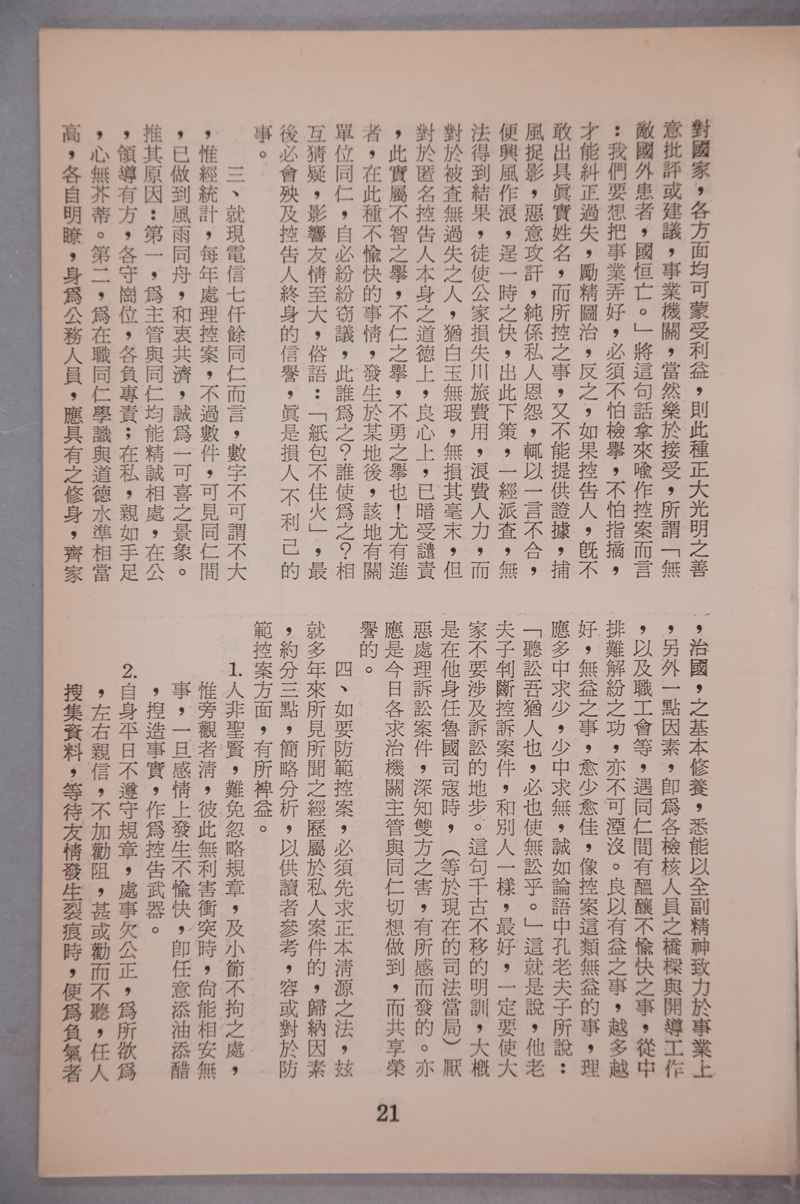 對國家，各方面均可蒙受利益，則此種正大光明之善
意批評或建議，事業機關，當然樂於接受，所謂「無
敵國外患者，國恒亡。」將這句話拿來喩作控案而言
：我們要想把事業弄好，必須不怕檢擧，不怕指摘，
才能糾正過失，勵精圖治，反之，如果控吿人，旣不
敢出具眞實姓名，而所控之事，又不能提供證據，捕
風捉影，惡意攻訐，純係私人恩怨，輒以一言不合，
便興風作浪，逞一時之快，出此下策，一經派査，無
法得到結果，徒使公家損失川旅費用，浪費人力，而
對於被査無過失之人，猶白玉無瑕，無損其毫末，但
對於匿名控吿人本身之道德上，良心上，已暗受譴責
，此實屬不智之擧，不仁之擧，不勇之擧也！尤有進
者，在此種不愉快的事情，發生於某地後，該地有關
單位同仁，自必紛紛窃議，此誰爲之？誰使爲之？相
互猜疑，影響友情至大，俗語：「紙包不住火」，最
後必會殃及控吿人終身的信譽，眞是損人不利己的
事。
三、就現電信七仟餘同仁而言，數字不可謂不大
，惟經統計，每年處理控案，不過數件，可見同仁間
，已做到風雨同舟，和衷共濟，誠爲一可喜之景象。
推其原因：第一，爲主管與同仁均能精誠相處，在公
，領導有方，各守崗位，各負專責；在私，親如手足
，心無芥蒂。第二，爲在職同仁學識與道德水準相當
高，各自明瞭，身爲公務人員，應具有之修身，齊家
，治國，之基本修養，悉能以全副精神致力於事業上
，另外一點因素，卽爲各檢核人員之橋樑與開導工作
，以及職工會等，遇同仁間有醞釀不愉快之事，從中
排難解紛之功，亦不可湮沒。良以有益之事，越多越
好，無益之事，愈少愈佳，像控案這類無益的事，理
應多中求少，少中求無，誠如論語中孔老夫子所說：
「聽訟吾猶人也，必也使無訟乎。」這就是說，他老
夫子判斷控訴案件，和別人一樣，最好，一定要使大
家不要涉及訴訟的地步。這句千古不移的明訓，大槪
是在他身任魯國司寇時，（等於現在的司法當局）厭
惡處理訴訟案件，深知雙方之害，有所感而發的。亦
應是今日各求治機關主管與同仁切想做到，而共享榮
譽的。
四、如要防範控案，必須先求正本淸源之法，玆
就多年來所見所聞之經歷屬於私人案件的，歸納因素
，約分三點，簡略分析，以供讀者參考，容或對於防
範控案方面，有所裨益。
1.人非聖賢，難免忽略規章，及小節不拘之處，
惟旁觀者淸，彼此無利害衝突時，尙能相安無
事，一旦感情上發生不愉快，卽任意添油添醋
，揑造事實，作爲控吿武器。
2.自身平日不遵守規章，處事欠公正，爲所欲爲
，左右親信，不加勸阻，甚或勸而不聽，任人
搜集資料，等待友情發生裂痕時，便爲負氣者
21